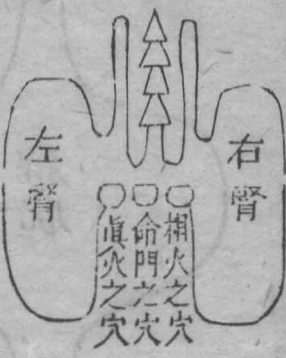 右腎
相火之穴
命門之穴
眞之穴
左腎